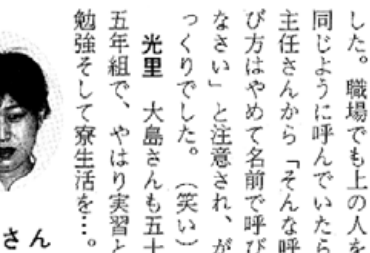 した。職場でも上の人を
同じように呼んでいたら
主任さんから「そんな呼
び方はやめて名前で呼び
なさい」と注意され、が
っくりでした。（笑い）
光里　大島さんも五十
五年組で、やはり実習と
勉強そして寮生活を…。
さん